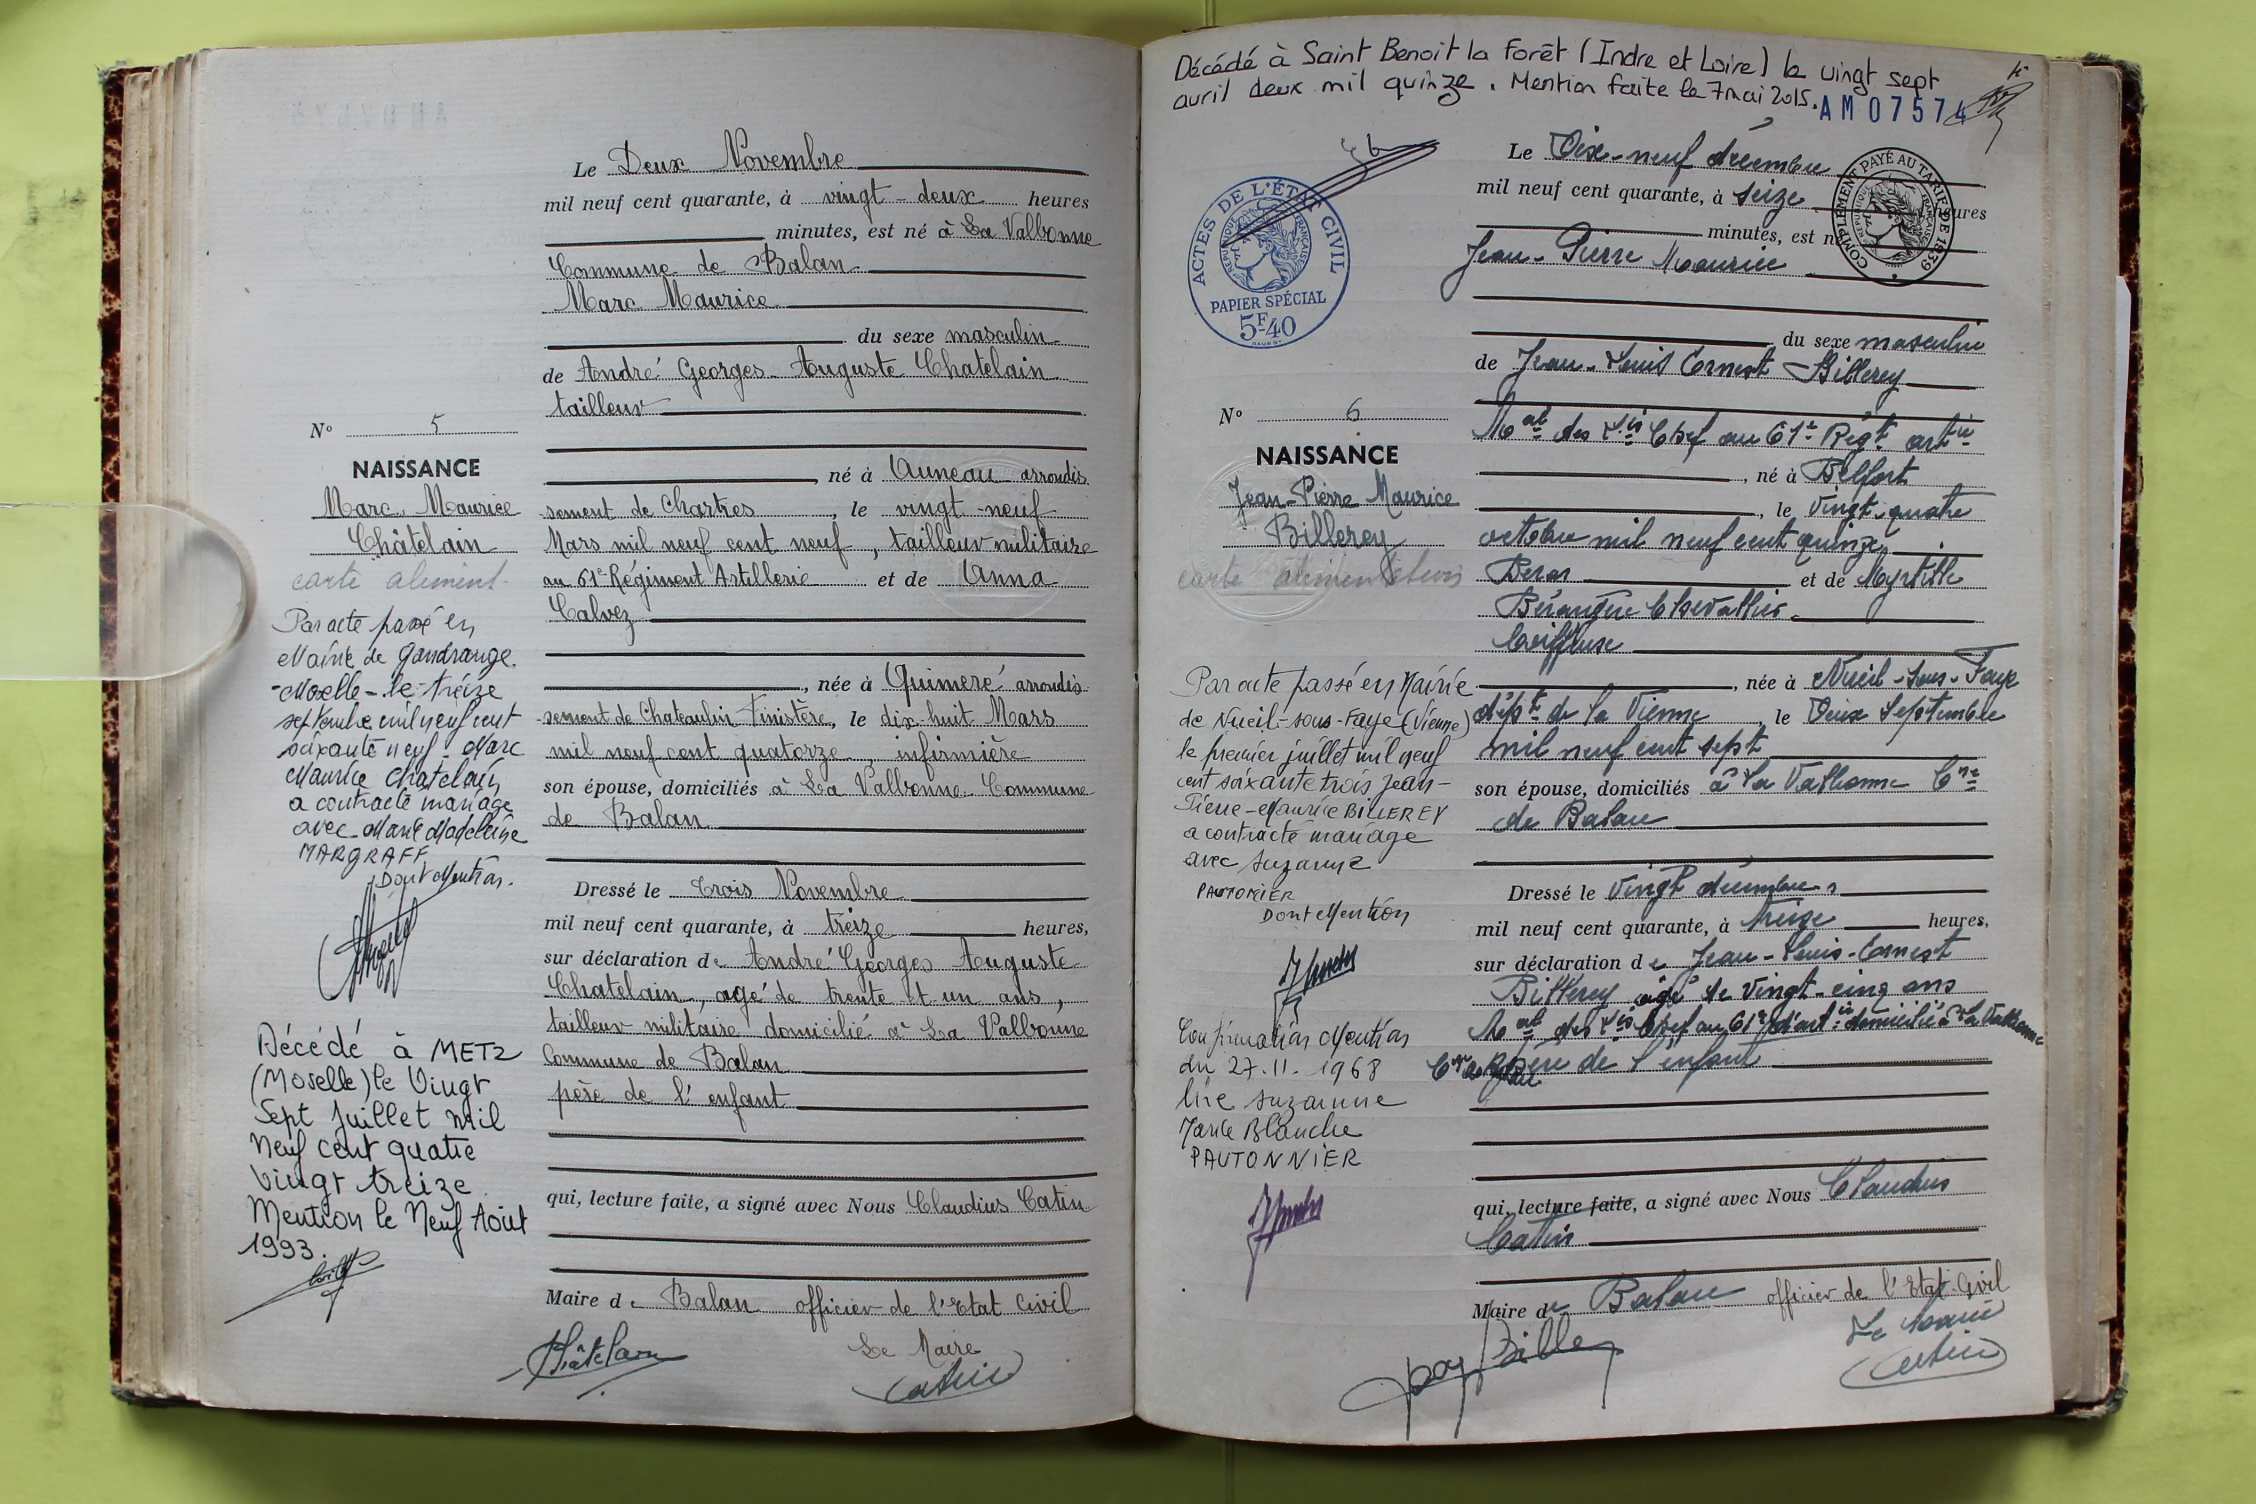 Le Deux Novembre
mil neuf cent quarante, à vingt-deux heures
minutes, est né à La Valbonne
Commune de Balan
Marc Maurice
du sexe masculin
de André Georges Auguste Chatelain
tailleur
né à Auneau arrondis
sement de Chartres, le vingt-neuf
Mars mil neuf cent neuf, tailleur militaire
au 61e Régiment Artillerie et de Anna
Calvez
, née à Quimeré arrondis
sement de Chateaulin Finistère, le dix-huit Mars
mil neuf cent quatorze, infirmière
son épouse, domiciliés à La Valbonne Commune
de Balan
Dressé le Trois Novembre
mil neuf cent quarante, à treize heures,
sur déclaration de André Georges Auguste
Chatelain, agé de trente et un ans,
tailleur militaire domicilié à La Valbonne
Commune de Balan
père de l'enfant
qui, lecture faite, a signé avec Nous Claudius Catin
Maire de Balan officier de l'Etat Civil
Châtelain
Le Maire
Catin
No 5
NAISSANCE
Marc Maurice
Châtelain
carte aliment
Par acte passé en
Mairie de Gandrange
-Moselle-le treize
septembre mil neuf cent
soixante neuf Marc
Maurice Chatelain
a contracté mariage
avec Marie Madeleine
MARGRAFF
Dont Mention.
Décédé à METZ
(Moselle) le Vingt
Sept Juillet mil
Neuf cent quatre
Vingt treize
Mention le Neuf Aout
1993.
Décédé à Saint Benoit la Forêt (Indre et Loire) le vingt sept
avril deux mil quinze. Mention faite le 7 mai 2015.
AM07574
ACTES DE L'ÉTAT CIVIL
RÉPUBLIQUE FRANÇAISE
PAPIER SPÉCIAL
5F40
COMPLÉMENT PAYÉ AU TARIF DE 1939
Le Dix-neuf décembre
mil neuf cent quarante, à seize heures
minutes, est né
Jean-Pierre Maurice
du sexe masculin
de Jean-Louis Ernest Billerey
Mal des Lis Chef au 61e Régt artie
, né à Belfort
, le Vingt-quatre
octobre mil neuf cent quinze
et de Myrtille
Bérangère Chevallier
Coiffeuse
, née à Nueil-sous-Faye
dépt de la Vienne, le Deux Septembre
mil neuf cent sept
son épouse, domiciliés à La Valbonne Cne
de Balan
Dressé le Vingt décembre
mil neuf cent quarante, à treize heures,
sur déclaration de Jean-Louis-Ernest
Billerey agé de vingt-cinq ans
Mal des Lis Chef au 61e d'artie domicilié à La Valbonne
Cne de Balan père de l'enfant
qui, lecture faite, a signé avec Nous Claudius
Catin
Maire de Balan officier de l'Etat Civil
Le Maire
Catin
No 6
NAISSANCE
Jean-Pierre Maurice
Billerey
carte alimentation
Par acte passé en Mairie
de Nueil-sous-Faye (Vienne)
le premier juillet mil neuf
cent soixante trois Jean-
Pierre-Maurice BILLEREY
a contracté mariage
avec Suzanne
PAUTONIER
Dont Mention
Confirmation Mention
du 27.11.1968
lire Suzanne
Marie Blanche
PAUTONNIER